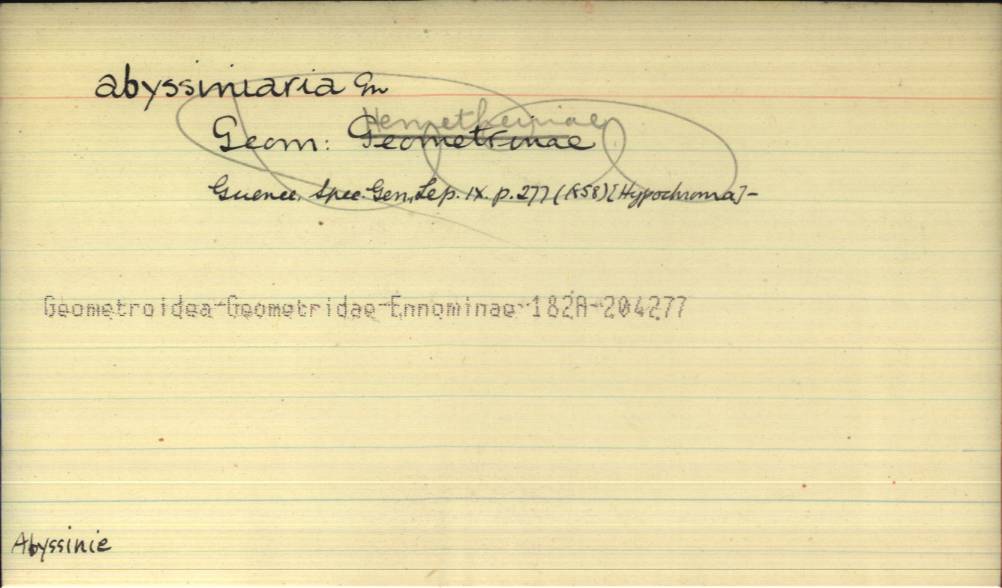 abyssiniaria Gn
Hemitheinae
Geom: Geometrinae
Guenee, Spec. Gen. Lep. IX. p. 277 (1858) [Hypochroma] -
Geometroidea-Geometridae-Ennominae-182A-204277
Abyssinie